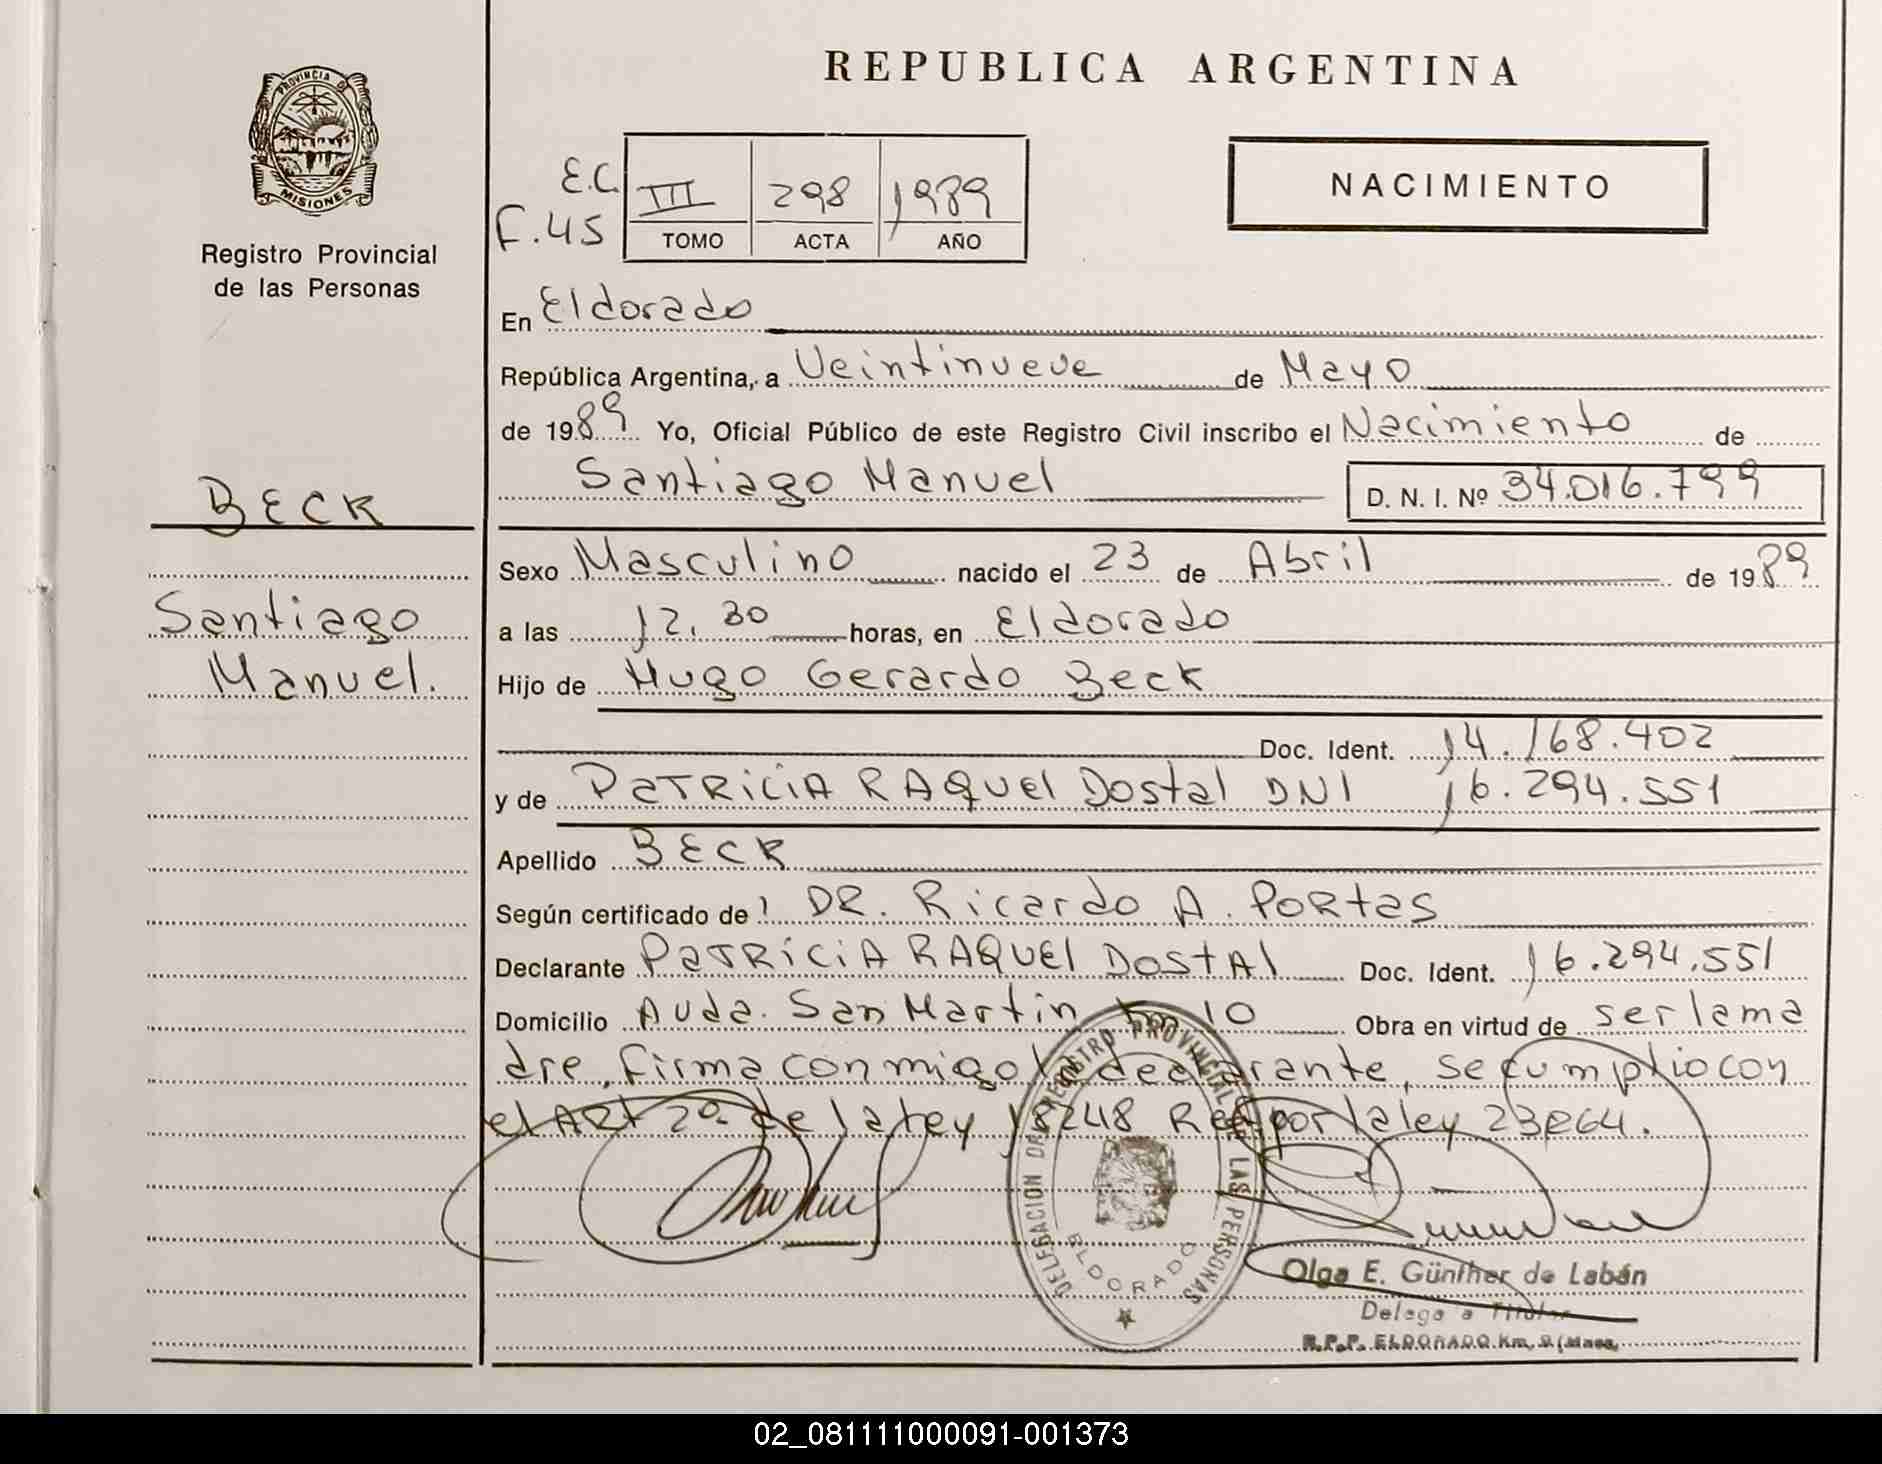 PROVINCIA DE
MISIONES
Registro Provincial
de las Personas
REPUBLICA ARGENTINA
NACIMIENTO
E.C.
F.45
III 298 1989
TOMO ACTA AÑO
En Eldorado
República Argentina, a Veintinueve de Mayo
de 1989 Yo, Oficial Público de este Registro Civil inscribo el Nacimiento de
Santiago Manuel D. N. I. Nº 34.016.799
BECK
Santiago
Manuel.
Sexo Masculino nacido el 23 de Abril de 1989
a las 12.30 horas, en Eldorado
Hijo de Hugo Gerardo Beck
Doc. Ident. 14.168.402
y de PATRICIA RAQUEL Dostal DNI 16.294.551
Apellido BECK
Según certificado de DR. Ricardo A. PORtas
Declarante PATRICIA RAQUEL DostAl Doc. Ident. 16.294.551
Domicilio Avda. San Martin Km 10 Obra en virtud de ser la ma
dre, firma conmigo la declarante, se cumplio con
el ART 2º de la Ley 18248 Ref por la ley 23264.
DELEGACION DEL REGISTRO PROVINCIAL DE LAS PERSONAS
ELDORADO
Olga E. Günther de Labán
Delegada Titular
R.P.P. ELDORADO Km. 9 (Mnes.
02_081111000091-001373